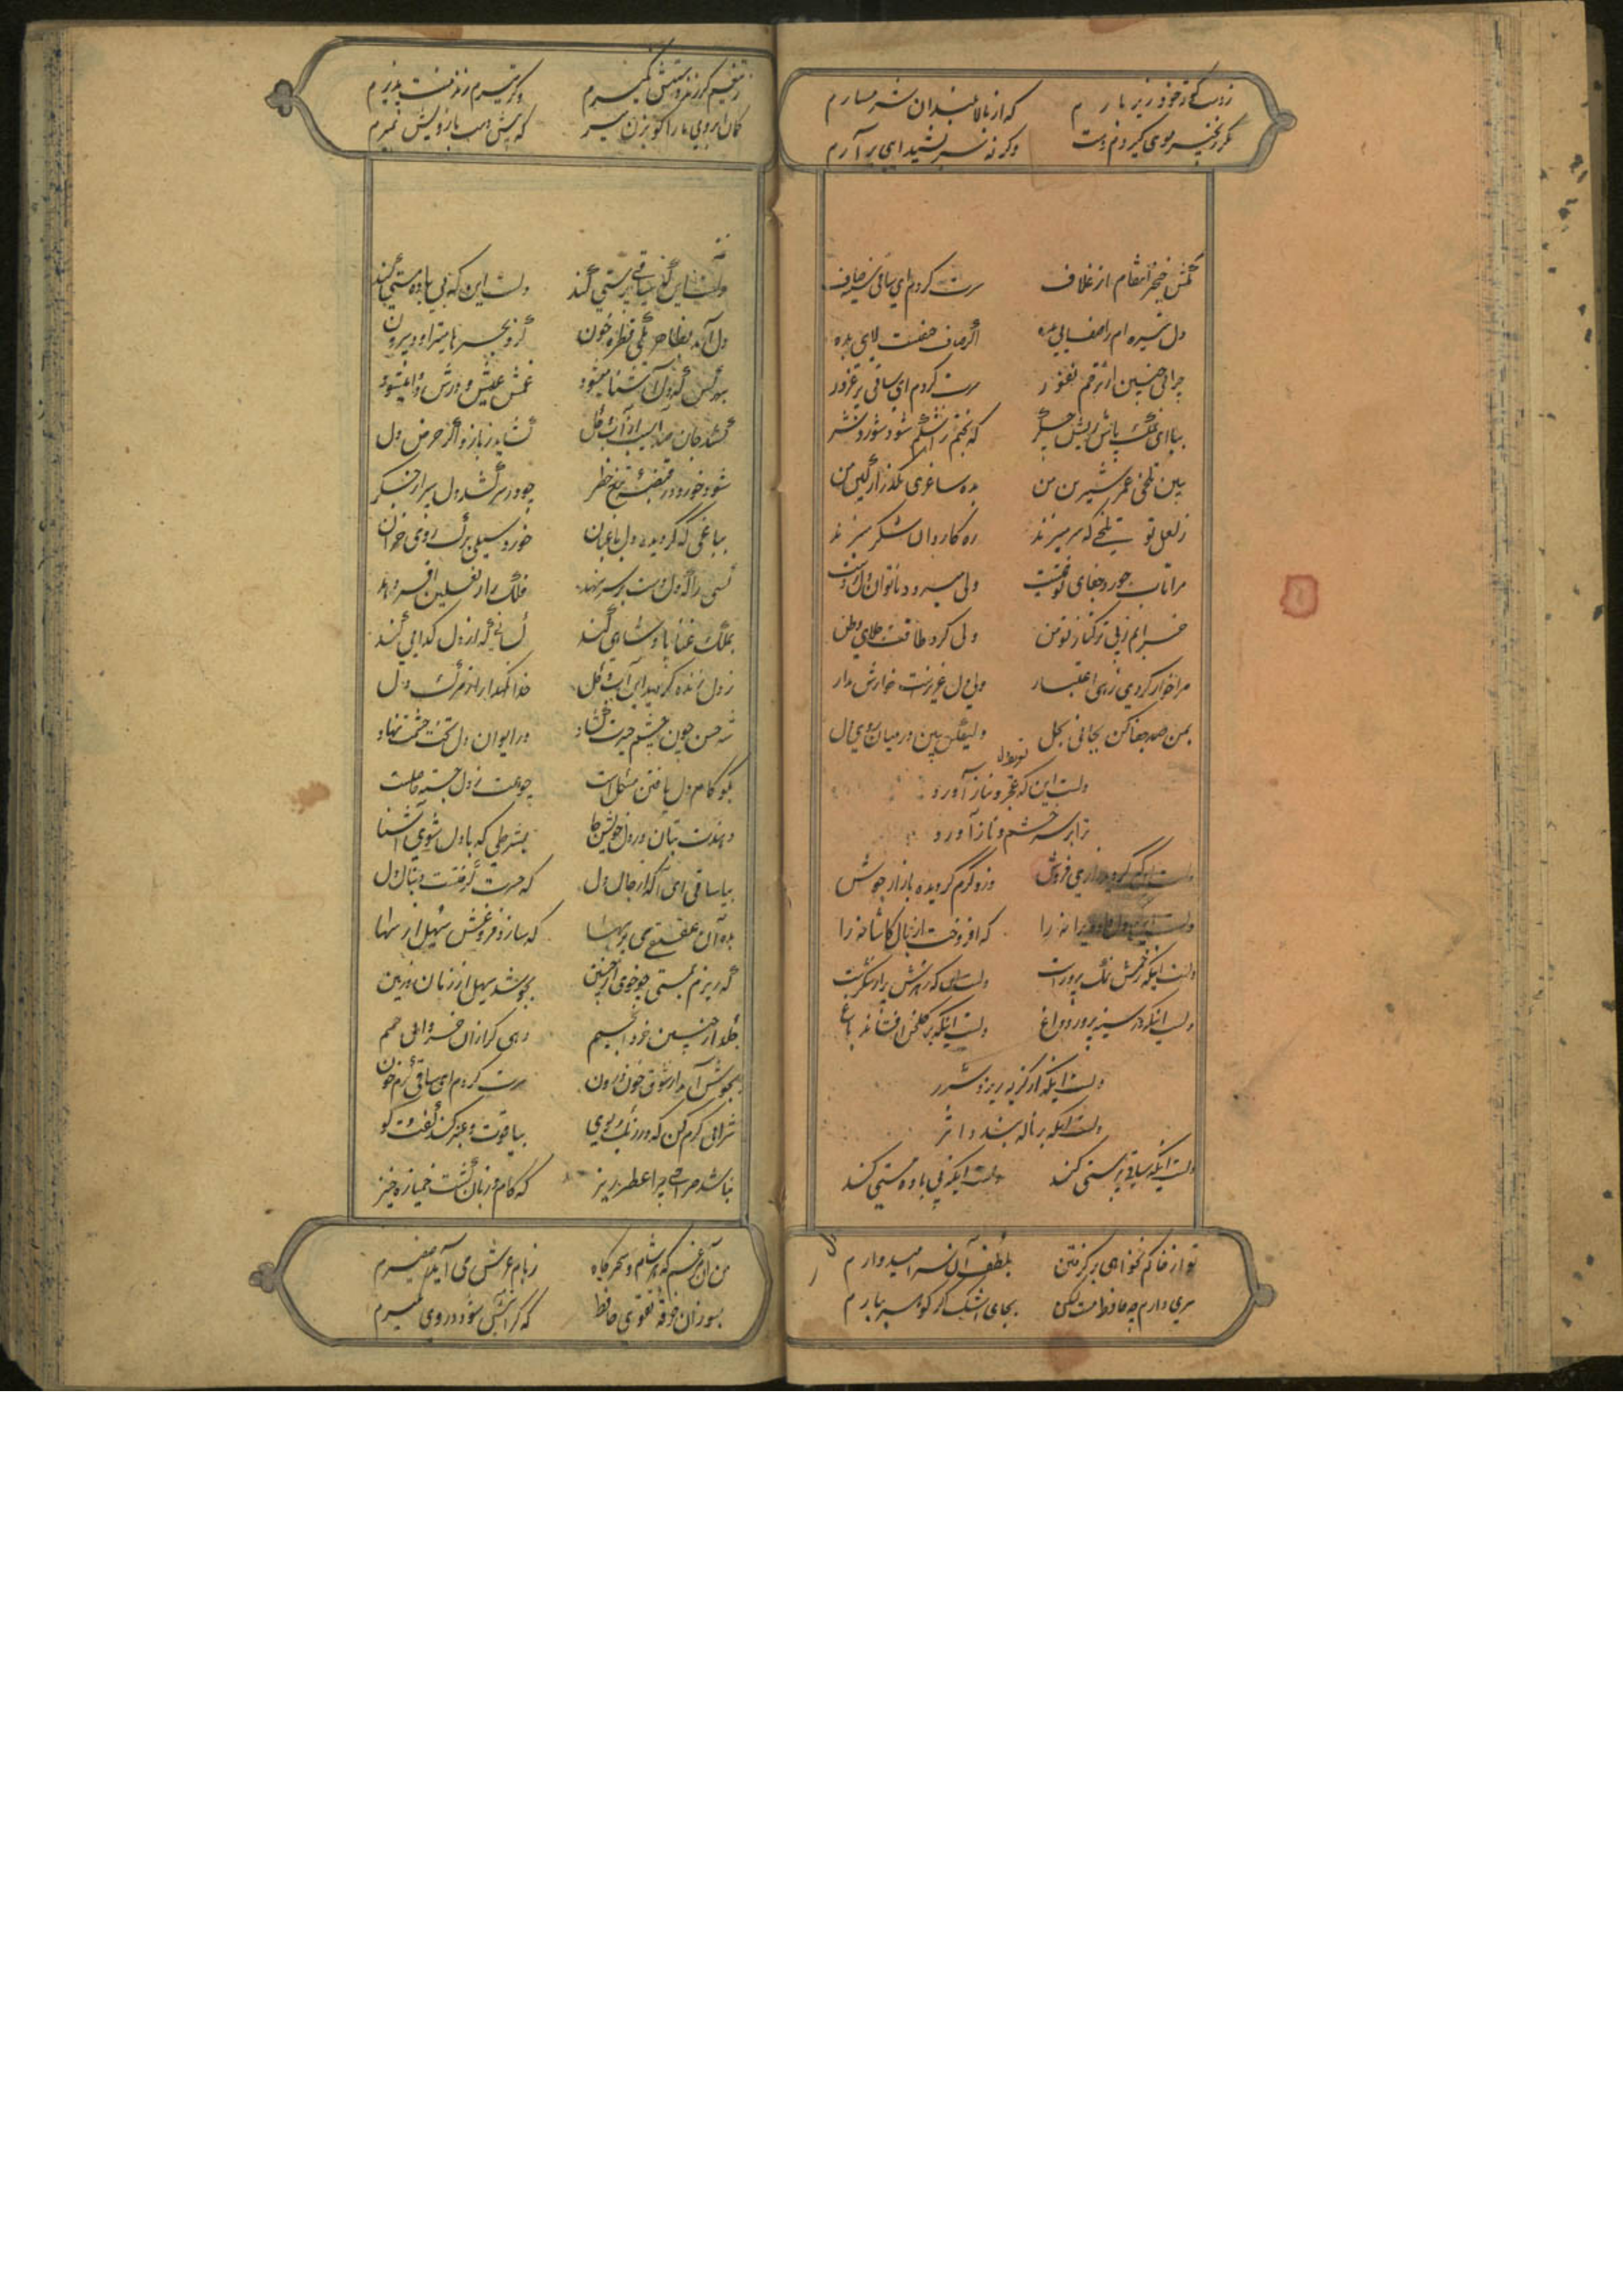 ز دست کوته خود زیر بارم که از بالابلندان شرمسارم
مگر زنجیر موی گیردم دست وگرنه سر بشیدایی برآرم
مکش خنجر انتقام از غلاف سرت گردم ای ساقی سینه صاف
دل تیره ام را صفایی بده اگر صاف حیفست لای بده
چرایی چنین از ترحم نفور سرت گردم ای ساقی پر غرور
بیا ای نمک پاش ریش جگر که بختم ز اشکم شود شور و شر
ببین تلخی عمر شیرین من بده ساغری بگذر از کین من
ز لعل تو تلخی که سر میزند ره کاروان شکر میزند
مرا تاب جور و جفای تو هست ولی میرود ناتوان دل ز دست
خرابم ز پی ترکتاز تو من ولی کرد طاقت جلای وطن
مرا خوار کردی ز بی اعتبار ولی دل عزیزست خوارش مدار
بمن صد جفا کن بجانی بحل ولیکن ببین در میان روی دل
دلست این که عجز و نیاز آورد
ترا بر سر خشم و ناز آورد
وزو گرم گردیده بازار جوش
که افروخت از نال کاشانه را
دلست اینکه زخمش نمک پرورست دلست اینکه زهرش برادر شکرست
دلست اینکه در سینه پرورد داغ دلست اینکه بر گلخن افشاند باغ
دلست اینکه از گریه ریزد شرر
دلست اینکه بر ناله بندد اثر
دلست اینکه ساقی پرستی کند دلست اینکه بی باده مستی کند
تو از خاکم نخواهی برگرفتن بلطف آن سر امیدوارم
سری دارم چو حافظ مست لیکن بجای اشک اگر گوهر ببارم
بتیغم گر زند دستش نگیرم وگر تیرم زند منت پذیرم
کمان ابروی ما را گو بزن تیر که پیش دست بازویش بمیرم
دلست این که ساقی پرستی کند دلست این که بی باده مستی کند
دل آمد بظاهر یکی قطره خون کزو بحرها میتراود برون
بهر کس که دل آشنا میشود غمش عیش و دردش دوا میشود
شود خود و در قبضه تیغ خطر چو در سر کشد دل سپر از جگر
بباغی که گردیده دل باغبان خورد سیلی برگ روی خزان
کسی را که دل دست بر سر نهد فلک را ز نعلین افسر دهد
بملک غنا پادشاهی کند کسانی که از دل گدایی کند
ز دل زنده گردید این آب و گل خدایا نگهدار از مرگ دل
شه حسن چون چشم حیرت گشاد در ایوان دل تخت حشمت نهاد
بگو کام دل یافتن مشکل است چو همت ز دل جسته حاصلست
دهندت بتان در دل خویش جا بشرطی که با دل شوی آشنا
بیا ساقی ای آگه از حال دل که حسرت گرفتست دنبال دل
بده آن عقیق می پر بها که سازد فروغش سهیل از سها
که ریزم بمستی چو خوی از جبین بجوشد سهیل از زمان و زمین
بجوش آمد از شوق خون درون سرت گردم ای ساقی گرم خون
شرابی کرم کن که در رنگ و بوی بیاقوت و عنبر کند گفت و گو
نباشد صراحی چرا عطر ریز که کام و زبان گشت خمیازه خیز
من آن مرغم که هر شام و سحرگاه ز بام عرش می آید صفیرم
بسوزان خرقه تقوی حافظ که گر آتش شود در وی نگیرم